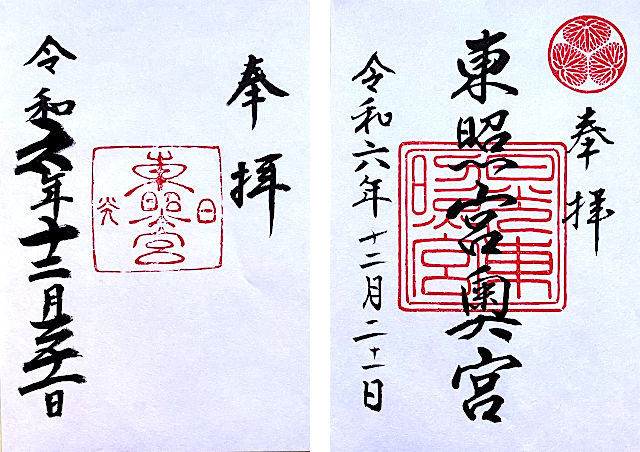 奉拝
日光
東照宮
令和六年十二月二十一日
奉拝
東照宮奥宮
令和六年十二月二十一日